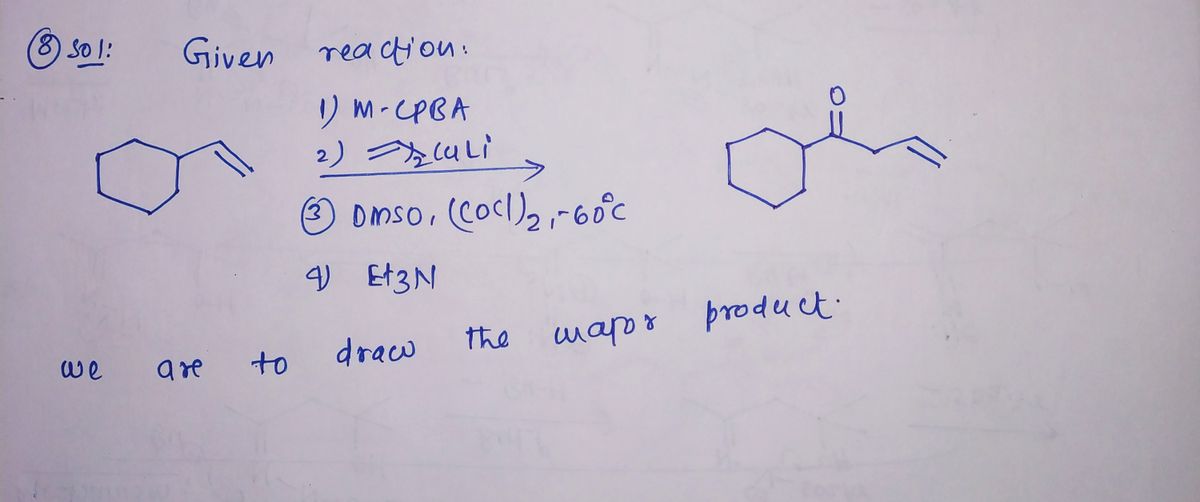 ⑧ Sol: Given reaction:
1) M-CPBA
2) )₂CuLi
③ DMSO, (COCl)₂, -60°C
4) Et3N
O
we are to draw the major product.